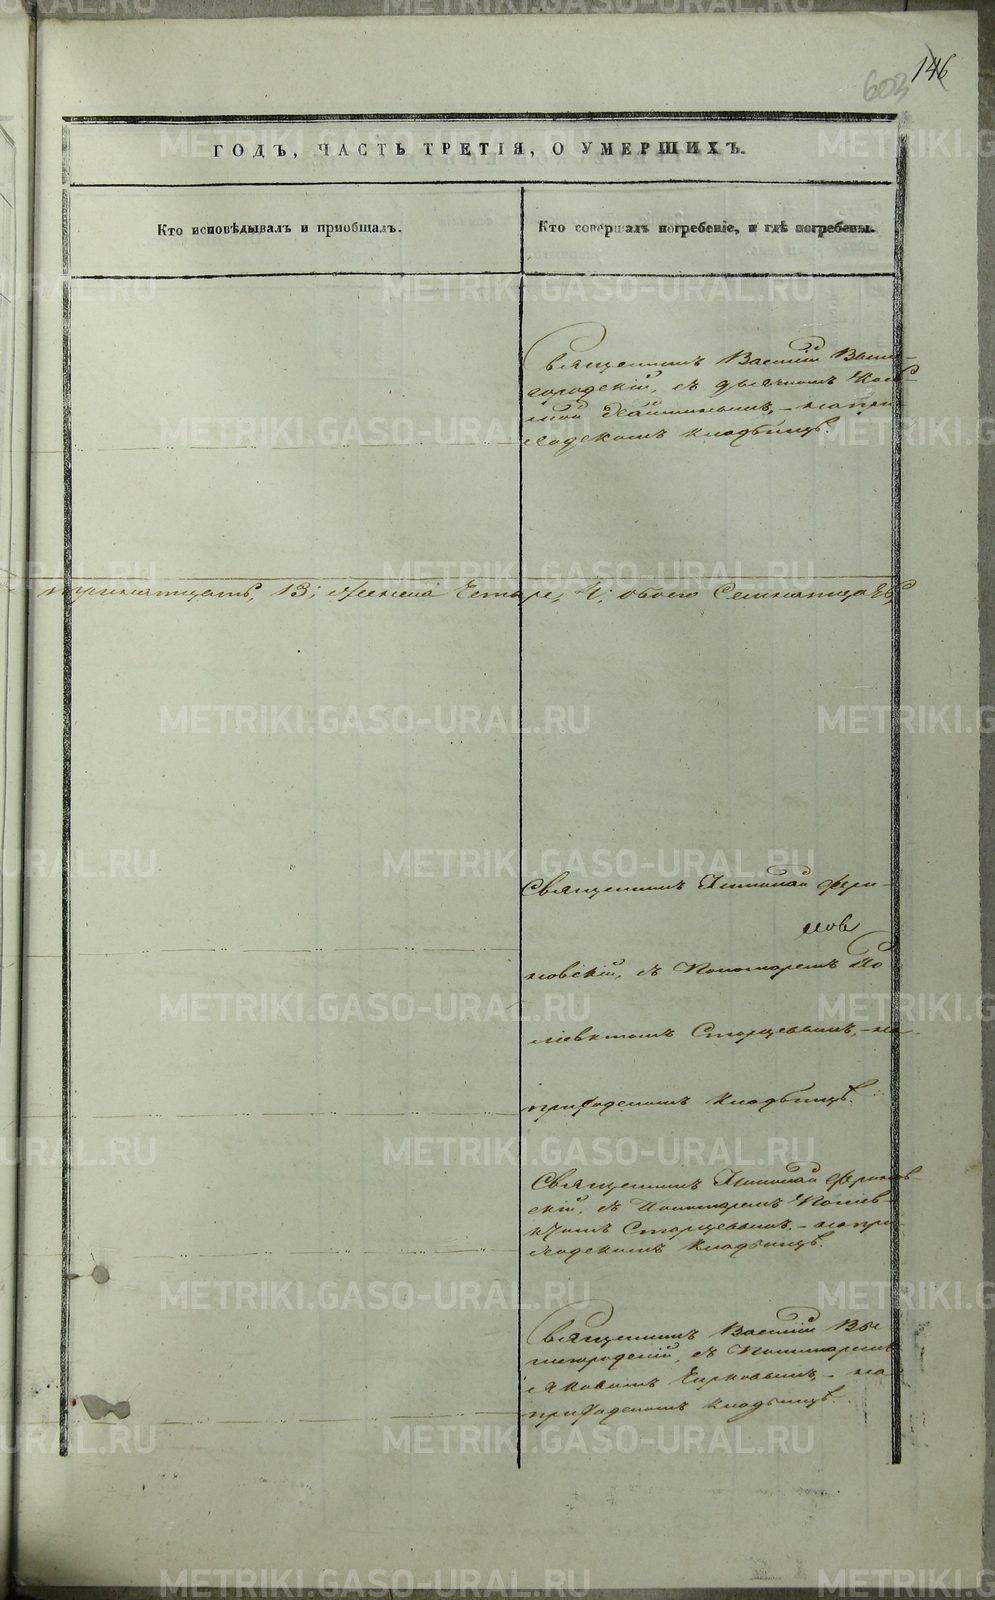 146
603
ГОДЪ, ЧАСТЬ ТРЕТІЯ, О УМЕРШИХЪ.
Кто исповѣдывалъ и пріобщалъ.
Кто совершалъ погребеніе, и гдѣ погребены.
Священникъ Василій Выш-
городскій, съ дьячкомъ
на при-
ходскомъ кладбищѣ.
тринатцать, 13; женска Четыре, 4; обоего Семнатцать
Священникъ Николай
нов
скій, съ Пономаремъ По
лиевктомъ Старцевымъ, - на
приходскомъ кладбищѣ.
Священникъ Николай
скій, съ Пономаремъ Полиев-
ктомъ Старцевымъ, - на при-
ходскомъ кладбищѣ.
Священникъ Василій Вы
шегородскій, съ Пономаремъ
Яковомъ - на
приходскомъ кладбищѣ.
METRIKI.GASO-URAL.RU